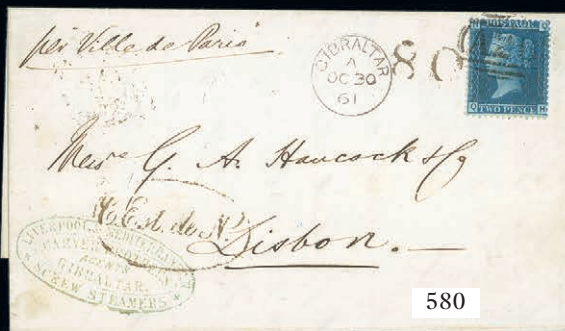 per Ville de Paris
GIBRALTAR
A
OC 30
61
80
TWO PENCE
Q H
Mess G. A. Hancock & Co
Lisbon. —
LIVERPOOL & MEDITERRANEAN
CARVER BROTHERS
AGENTS
GIBRALTAR.
SCREW STEAMERS
580